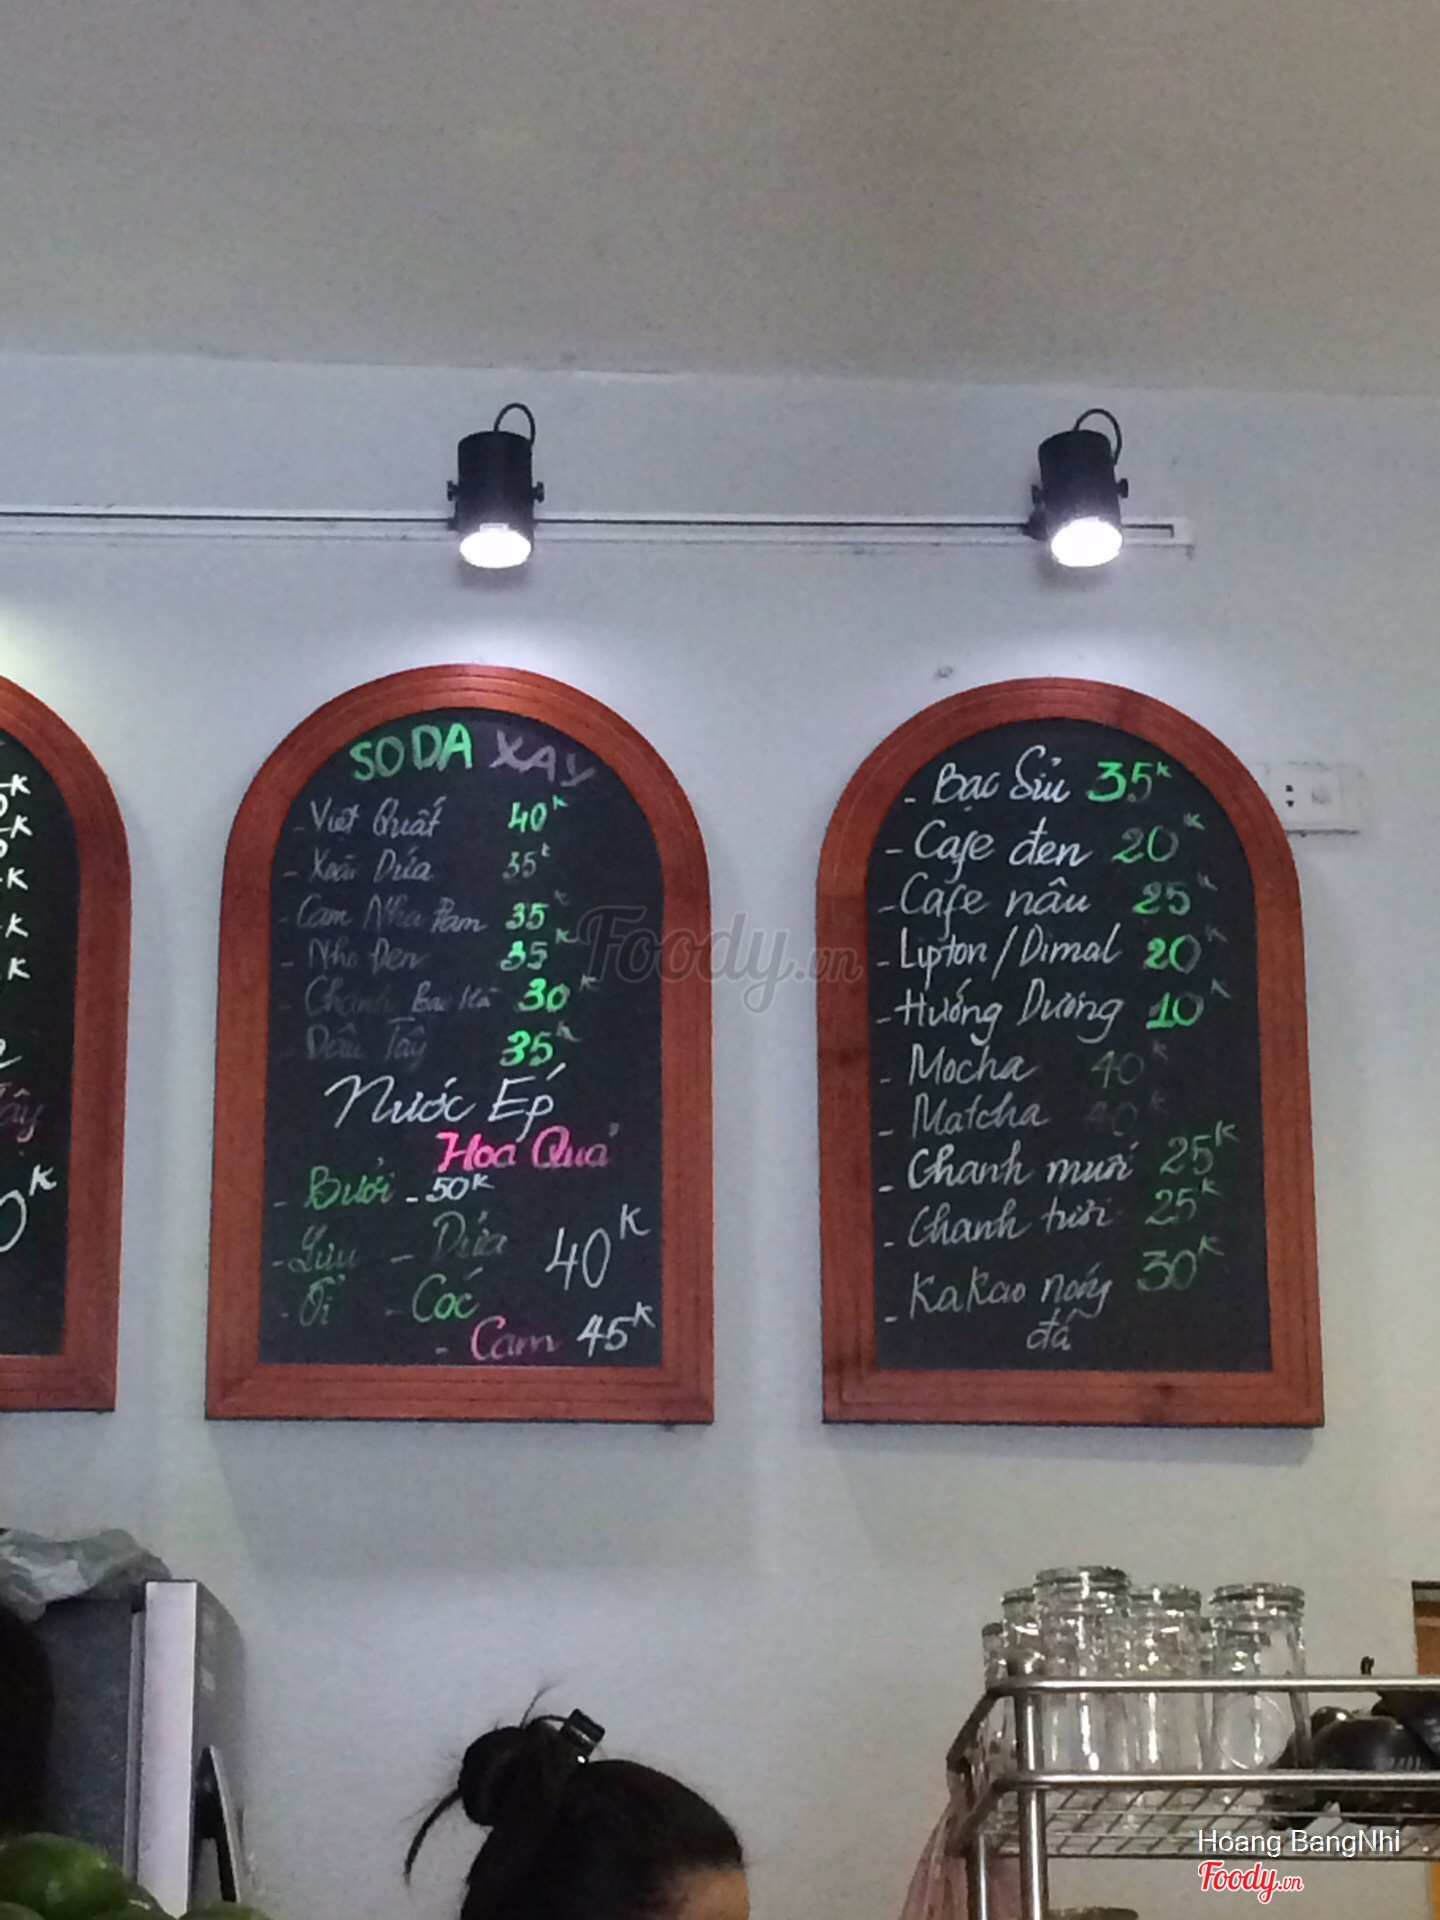 SODA XAY
- Việt Quất 40K
- Xoài Dứa 35K
- Cam Nha Đam 35K
- Nho Đen 35K
- Chanh Bạc Hà 30K
- Dâu Tây 35K
Nước Ép
Hoa Quả
- Bưởi - 50K
- Lựu - Dứa 40K
- Ổi - Cóc
- Cam 45K
- Bạc Sỉu 35K
- Cafe đen 20K
- Cafe nâu 25K
- Lipton / Dimal 20K
- Hướng Dương 10K
- Mocha 40K
- Matcha 40K
- Chanh muối 25K
- Chanh tươi 25K
- KaKao nóng 30K
đá
Foody.vn
Hoang BangNhi
Foody.vn